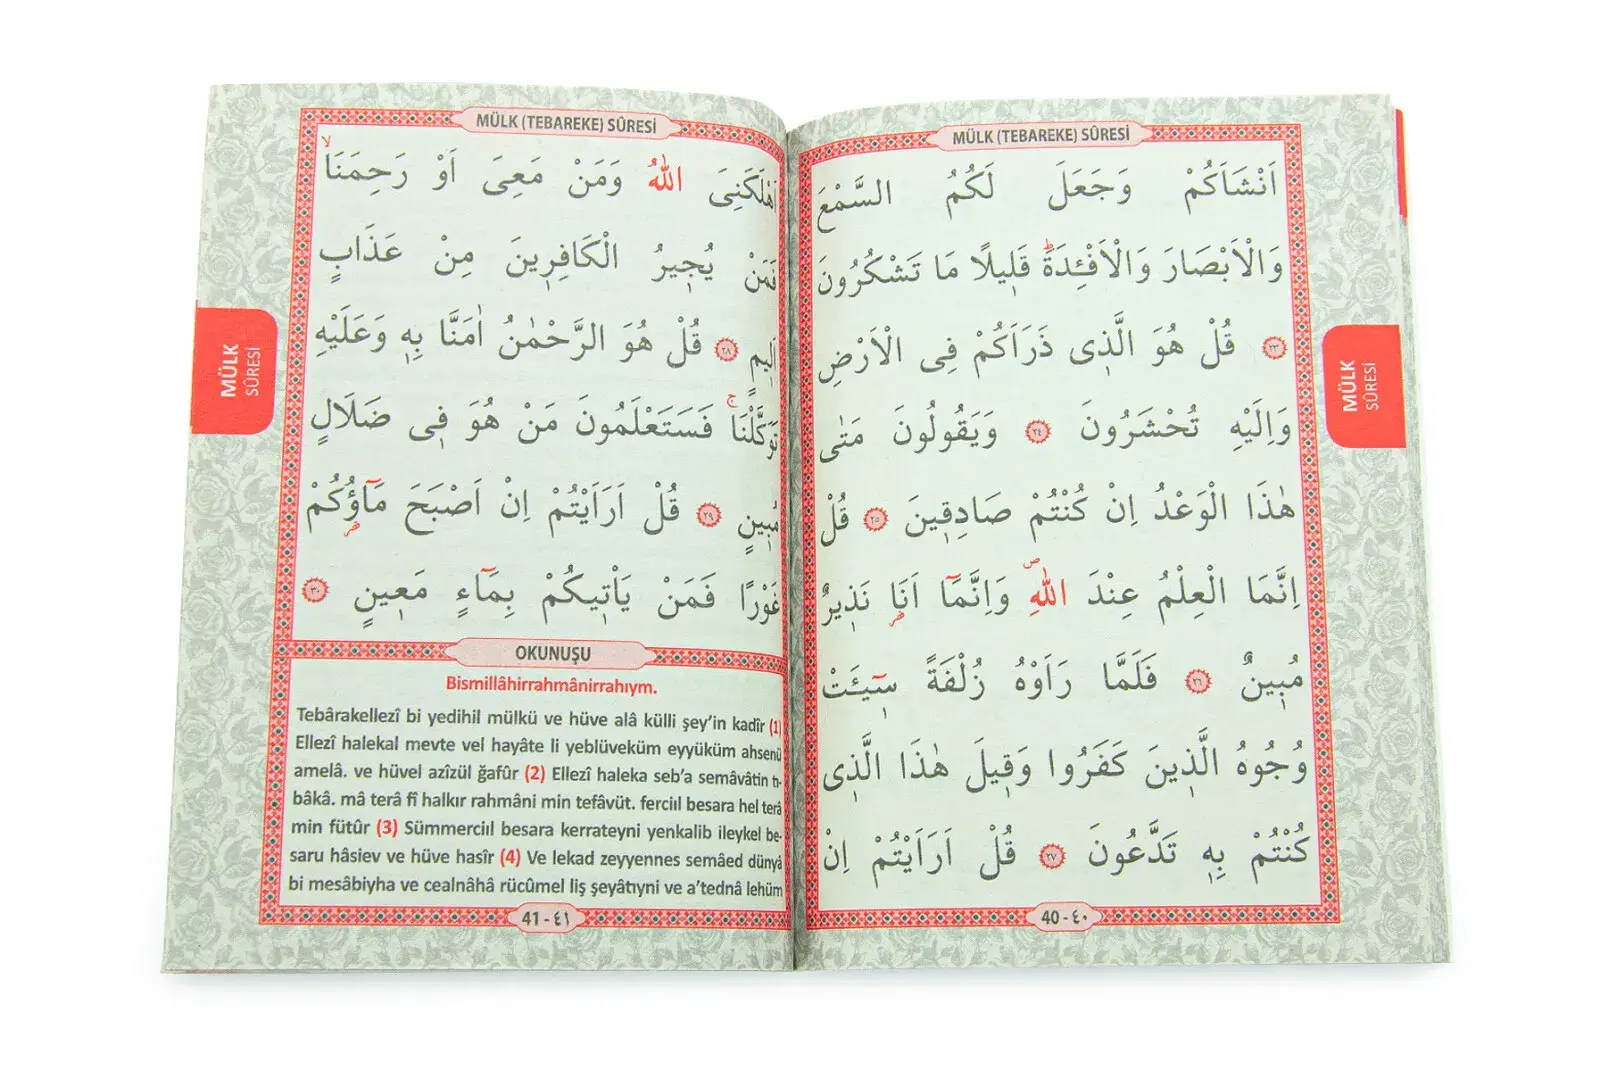 MÜLK (TEBAREKE) SÛRESİ
اَنْشَاَكُمْ وَجَعَلَ لَكُمُ السَّمْعَ
وَالْاَبْصَارَ وَالْاَفْـِٔدَةَۜ قَلٖيلًا مَا تَشْكُرُونَ
﴿٢٣﴾ قُلْ هُوَ الَّذٖى ذَرَاَكُمْ فِى الْاَرْضِ
وَاِلَيْهِ تُحْشَرُونَ ﴿٢٤﴾ وَيَقُولُونَ مَتٰى
هٰذَا الْوَعْدُ اِنْ كُنْتُمْ صَادِقٖينَ ﴿٢٥﴾ قُلْ
اِنَّمَا الْعِلْمُ عِنْدَ اللّٰهِۖ وَاِنَّمَٓا اَنَا۬ نَذٖيرٌ
مُبٖينٌ ﴿٢٦﴾ فَلَمَّا رَاَوْهُ زُلْفَةً سٖٓيـَٔتْ
وُجُوهُ الَّذٖينَ كَفَرُوا وَقٖيلَ هٰذَا الَّذٖى
كُنْتُمْ بِهٖ تَدَّعُونَ ﴿٢٧﴾ قُلْ اَرَاَيْتُمْ اِنْ
40 - ٤٠
MÜLK
SÛRESİ
MÜLK (TEBAREKE) SÛRESİ
اَهْلَكَنِىَ اللّٰهُ وَمَنْ مَعِىَ اَوْ رَحِمَنَاۙ
فَمَنْ يُجٖيرُ الْكَافِرٖينَ مِنْ عَذَابٍ
اَلٖيمٍ ﴿٢٨﴾ قُلْ هُوَ الرَّحْمٰنُ اٰمَنَّا بِهٖ وَعَلَيْهِ
تَوَكَّلْنَاۚ فَسَتَعْلَمُونَ مَنْ هُوَ فٖى ضَلَالٍ
مُبٖينٍ ﴿٢٩﴾ قُلْ اَرَاَيْتُمْ اِنْ اَصْبَحَ مَٓاؤُ۬كُمْ
غَوْرًا فَمَنْ يَاْتٖيكُمْ بِمَٓاءٍ مَعٖينٍ ﴿٣٠﴾
OKUNUŞU
Bismillâhirrahmânirrahıym.
Tebârakellezî bi yedihil mülkü ve hüve alâ külli şey’in kadîr (1)
Ellezî halekal mevte vel hayâte li yeblüveküm eyyüküm ahsenü
amelâ. ve hüvel azîzül ğafûr (2) Ellezî haleka seb’a semâvâtin tı-
bâkâ. mâ terâ fî halkır rahmâni min tefâvüt. ferciıl besara hel terâ
min fütûr (3) Sümmerciıl besara kerrateyni yenkalib ileykel be-
saru hâsiev ve hüve hasîr (4) Ve lekad zeyyennes semâed dünyâ
bi mesâbiyha ve cealnâhâ rücûmel liş şeyâtıyni ve a’tednâ lehüm
41 - ٤١
MÜLK
SÛRESİ